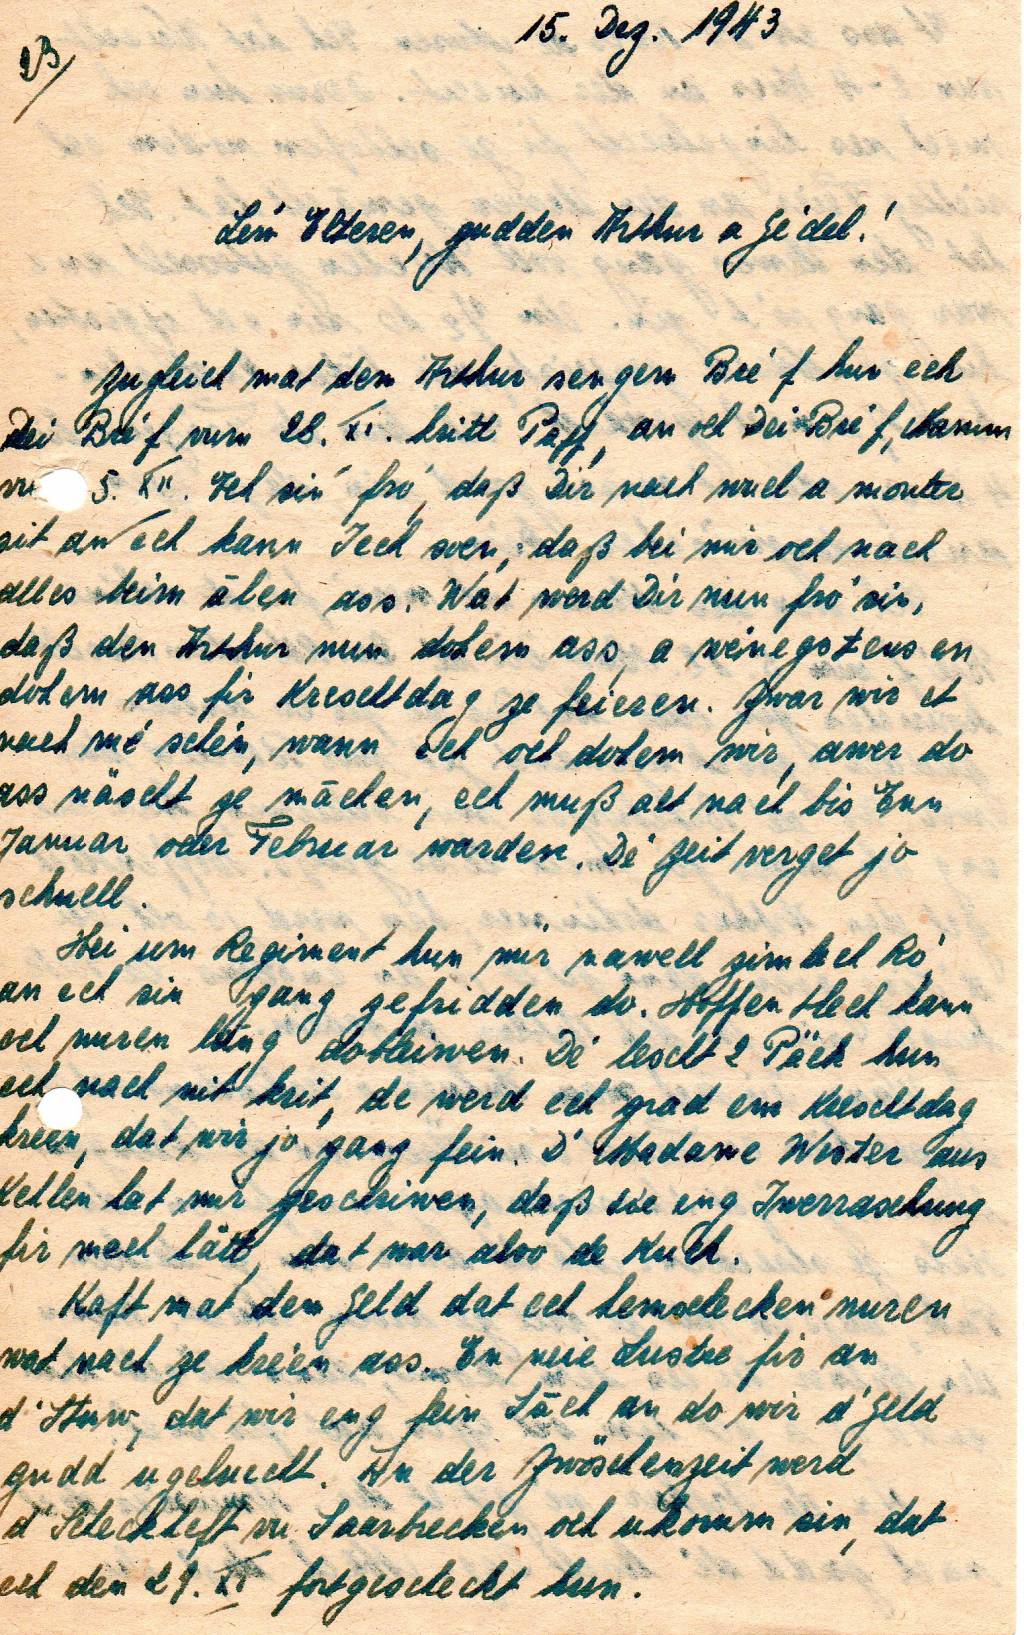 15. Dez. 1943
23/
Léiw Elteren, gudden Arthur a Jeidel!
Zugleich mat dem Arthur sengem Bréif hun ech
Dei Bréif vum 28. XI. kritt Papp, an och Dei Bréif, Mamm
vum 5. XII. Ech sin fro', daß Dir nach wuel a monter
sit an ech kann Iech soen, daß bei mir och nach
alles beim ālen ass. Wat werd Dir nun fro' sin,
daß den Arthur nun dohem ass, a wéinegstens en
dohem ass fir Kreschtdag ze feieren. Zwar wir et
nach mé schéin, wann ech och dohem wir, awer do
ass näscht ze māchen, ech muß alt nach bis Enn
Januar oder Februar warden. Dé Zeit verget jo
schnell.
Hei um Regiment hun mir nawell zimlech Ro'
an ech sin gang zefridden do. Hoffentlech kann
ech nuren lāng dobleiwen. Dé lescht 2 Päck hun
ech nach nit krit, de werd ech grad em Kreschtdag
kréen, dat wir jo gang fein. D' Madame Wester aus
Kehlen hat mir geschriwen, daß sie eng Iwerraschung
fir mech hätt, dat war also de Kuch.
Kaft mat dem Geld dat ech hemschecken nuren
wat nach ze kréen ass. En neie Lustre fir an
d' Stuw, dat wir eng fein Sāch an do wir d' Geld
gudd ugeluecht. An der Zwöschenzeit werd
d' Scheckheft vu Saarbrecken och ukomm sin, dat
ech den 29. XI fortgescheckt hun.